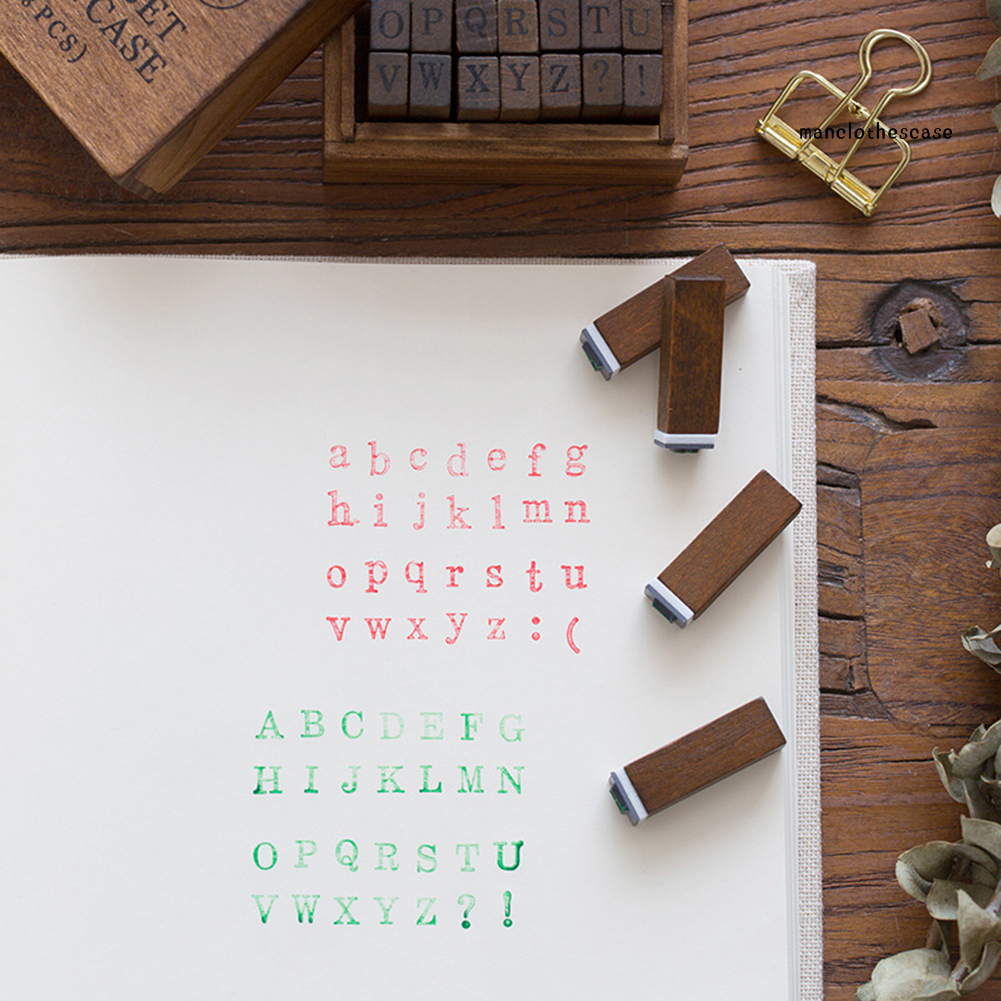 SET
CASE
PCS)
O P Q R S T U
V W X Y Z ? !
manclothescase
a b c d e f g
h i j k l m n
o p q r s t u
v w x y z : (
A B C D E F G
H I J K L M N
O P Q R S T U
V W X Y Z ? !